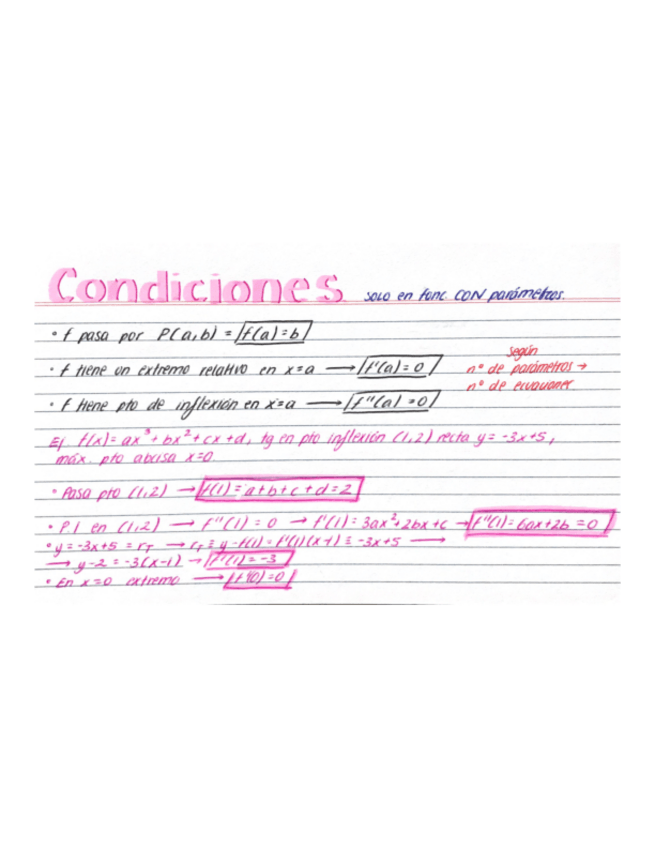 Condiciones solo en func CON parámetros.
· f pasa por P(a,b) = f(a)=b
· f tiene un extremo relativo en x=a → f'(a)=0
según
nº de parámetros →
nº de ecuaciones
· f tiene pto de inflexión en x=a → f''(a)=0
Ej f(x)= ax³+bx²+cx+d, tg en pto inflexión (1,2) recta y=-3x+5,
máx. pto abcisa x=0
· Pasa pto (1,2) → f(1)=a+b+c+d=2
· PI en (1,2) → f''(1)=0 → f'(1)=3ax²+2bx+c → f''(1)=6ax+2b=0
· y=-3x+5 = rT → rT ≡ y-f(1)=f'(1)(x-1) ≡ -3x+5 →
→ y-2=-3(x-1) → f'(1)=-3
· En x=0 extremo → f'(0)=0